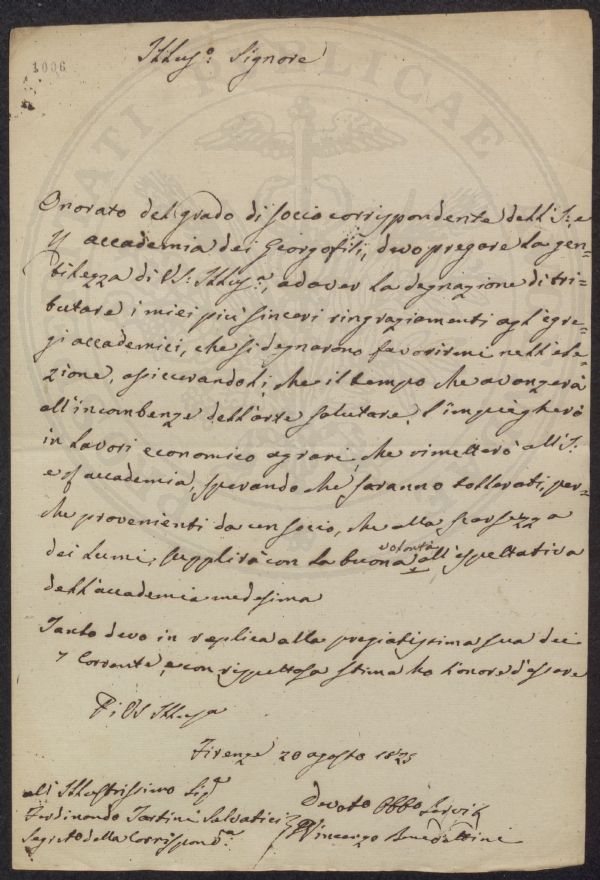 1006
Illusº: Signore
Onorato del grado di socio corrispondente dell'I: e
R accademia dei Georgofili, devo pregare la gen=
tilezza di VS: Illusª:, ad aver la degnazione di tri=
butare i miei più sinceri ringraziamenti agl'egre=
gi accademici, che si degnarono favorirmi nell'ele=
zione, assicurandoli, che il tempo che avanzerà
all'incombenze dell'arte salutare, l'impiegherò
in lavori economico agrari, che rimetterò all'I:
e R accademia, sperando che saranno tollerati, per=
che provenienti da un socio, che alla scarsezza
dei lumi, supplirà con la buona volontà all'espettativa
dell'accademia medesima
Tanto devo in replica alla pregiatissima sua dei
7 Corrente, e con rispettosa stima ho l'onore d'essere
Di VS Illusa
Firenze 20 agosto 1825
all Illustrissimo Sigʳ
Ferdinando Tartini Salvatici
Segretº della Corrispondª
Devoto Obbo Servit
Vincenzo Benedettini
PUBLICAE